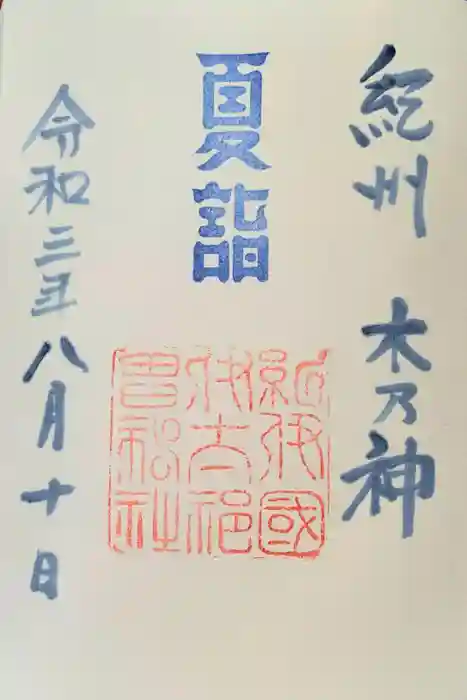 紀州 木乃神
夏詣
紀伊國
伊太祁
曽神社
令和三年八月十日